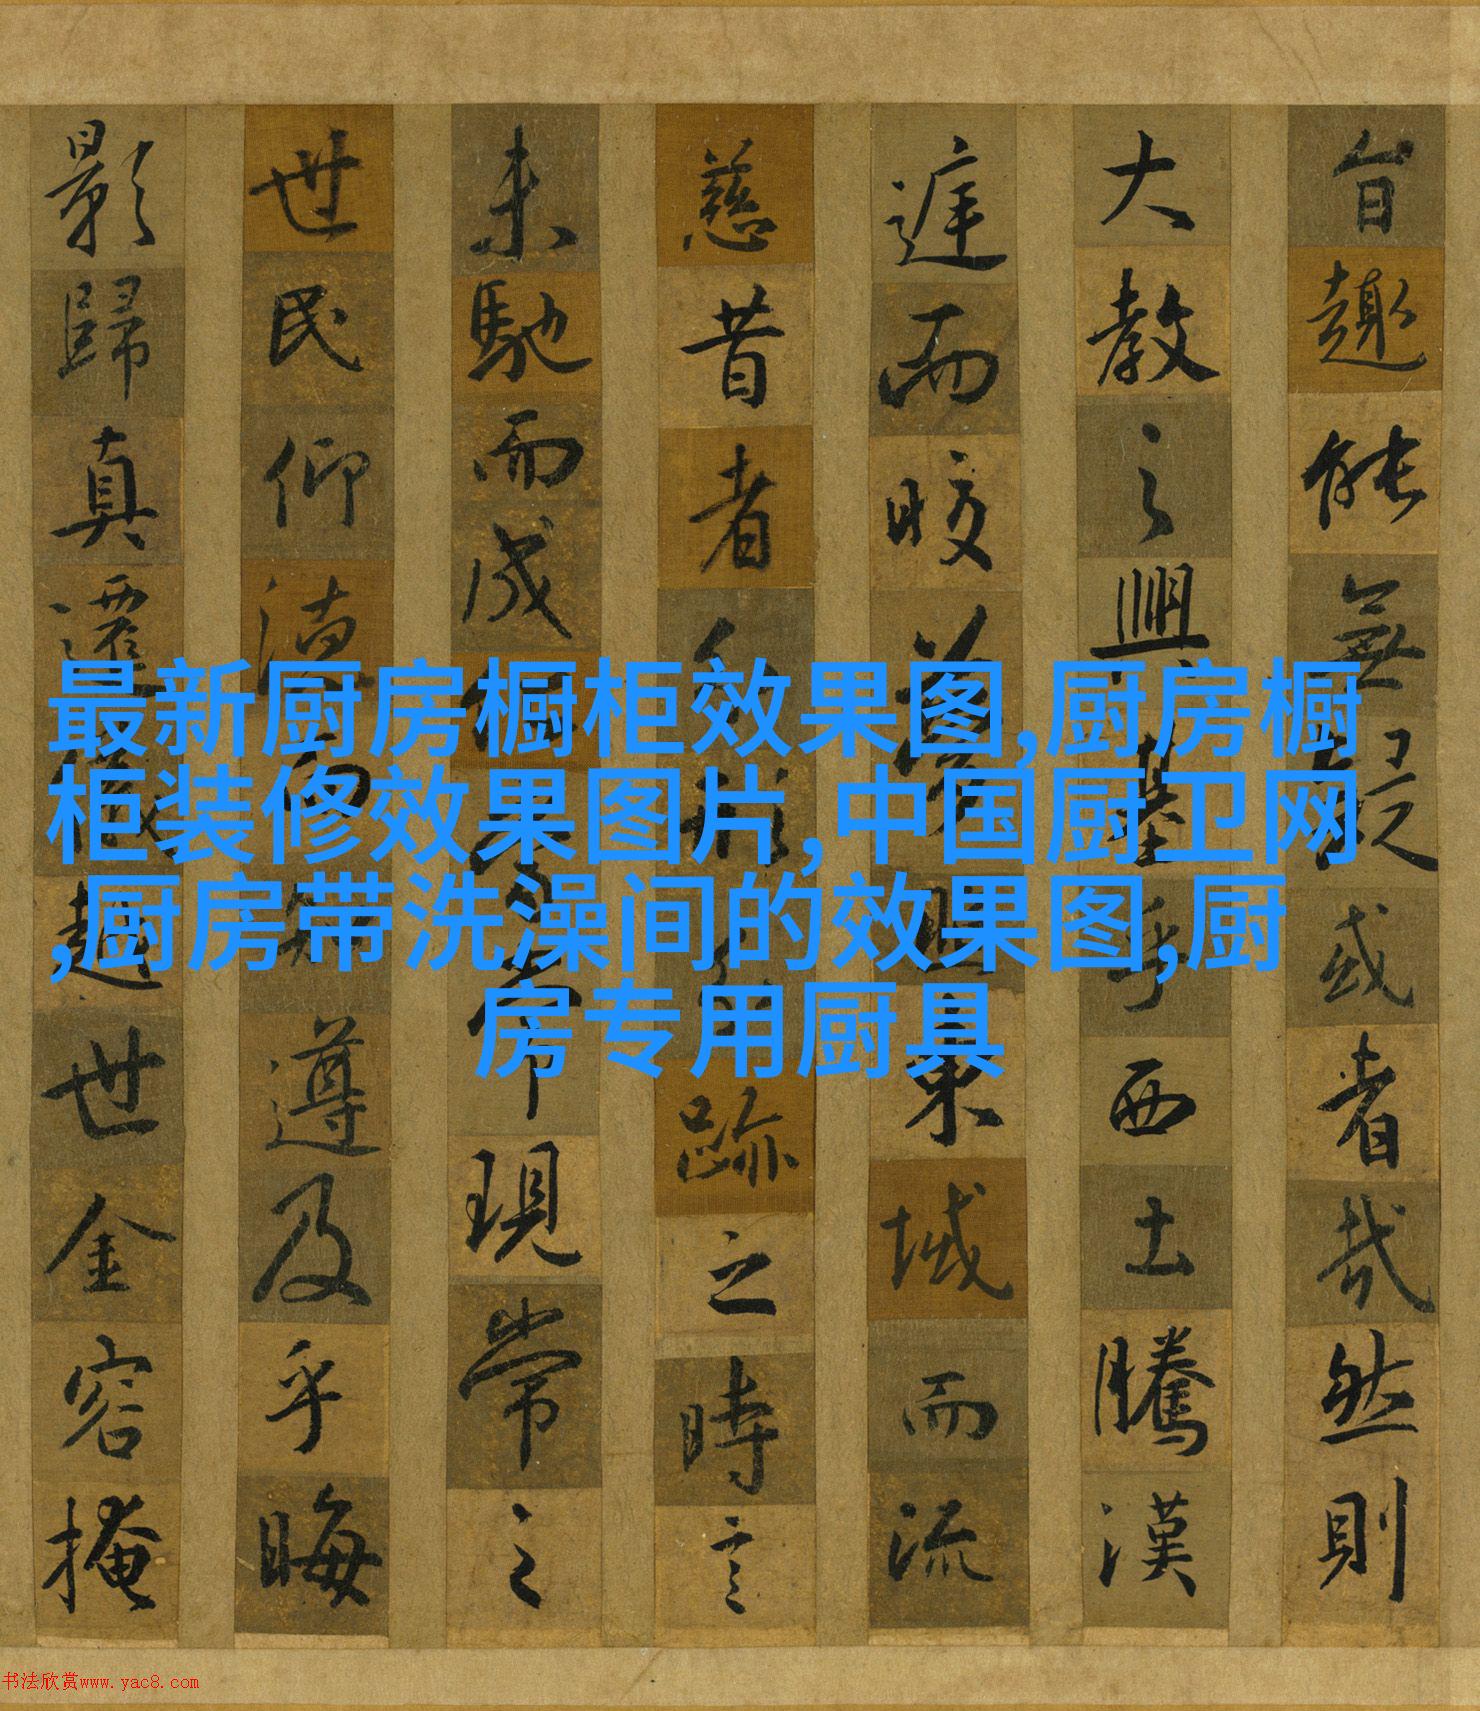 旨趣能無疑或者哉然則
大教之興基乎西土騰漢
庭而晈夢照東域而流
慈昔者分形分跡之時言
未馳而成化當常現常之
世民仰德而知遵及乎晦
影歸真遷儀越世金容掩
最新厨房橱柜效果图,厨房橱
柜装修效果图片,中国厨卫网
,厨房带洗澡间的效果图,厨
房专用厨具
书法欣赏www.yac8.com